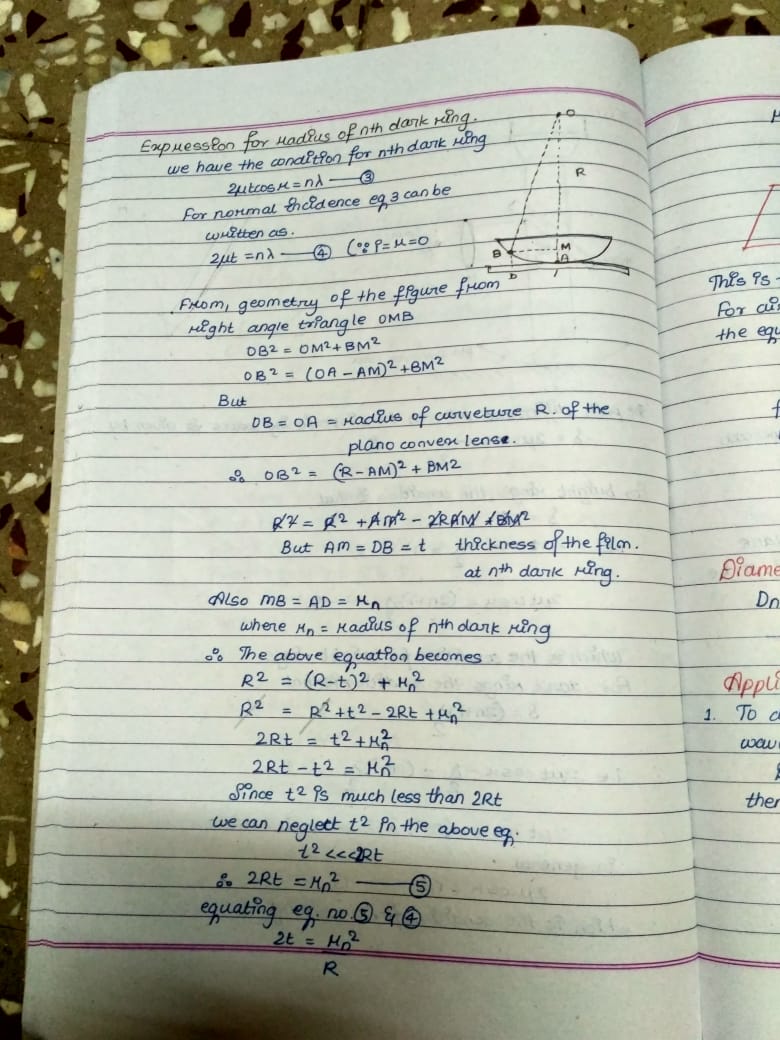 Expression for radius of nth dark ring.
we have the condition for nth dark ring
2μtcosr = nλ —— ③
For normal incidence eq 3 can be
written as.
2μt = nλ —— ④ (∵ i = r = 0
O
R
B
M
A
D
From, geometry of the figure from
right angle triangle OMB
OB² = OM² + BM²
OB² = (OA - AM)² + BM²
But
OB = OA = radius of curveture R. of the
plano convex lense.
∴ OB² = (R - AM)² + BM²
R² = R² + AM² - 2RAM + BM²
But AM = DB = t thickness of the film.
at nth dark ring.
Also MB = AD = rn
where rn = radius of nth dark ring
∴ The above equation becomes
R² = (R-t)² + rn²
R² = R² + t² - 2Rt + rn²
2Rt = t² + rn²
2Rt - t² = rn²
Since t² is much less than 2Rt
we can neglect t² in the above eq.
t² <<< 2Rt
∴ 2Rt = rn² —— ⑤
equating eq. no. ⑤ & ④
2t = rn²
R
This is
For air
the equ
Diame
Dn
Appli
1. To
wav
ther